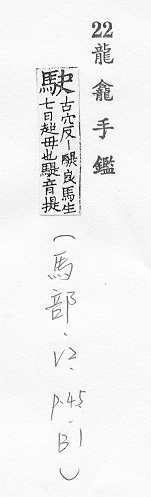 22龍龕手鑑
駃古穴反丨騠良馬生
七日超母也騠音提
(馬部.V2.
p.45.B1)